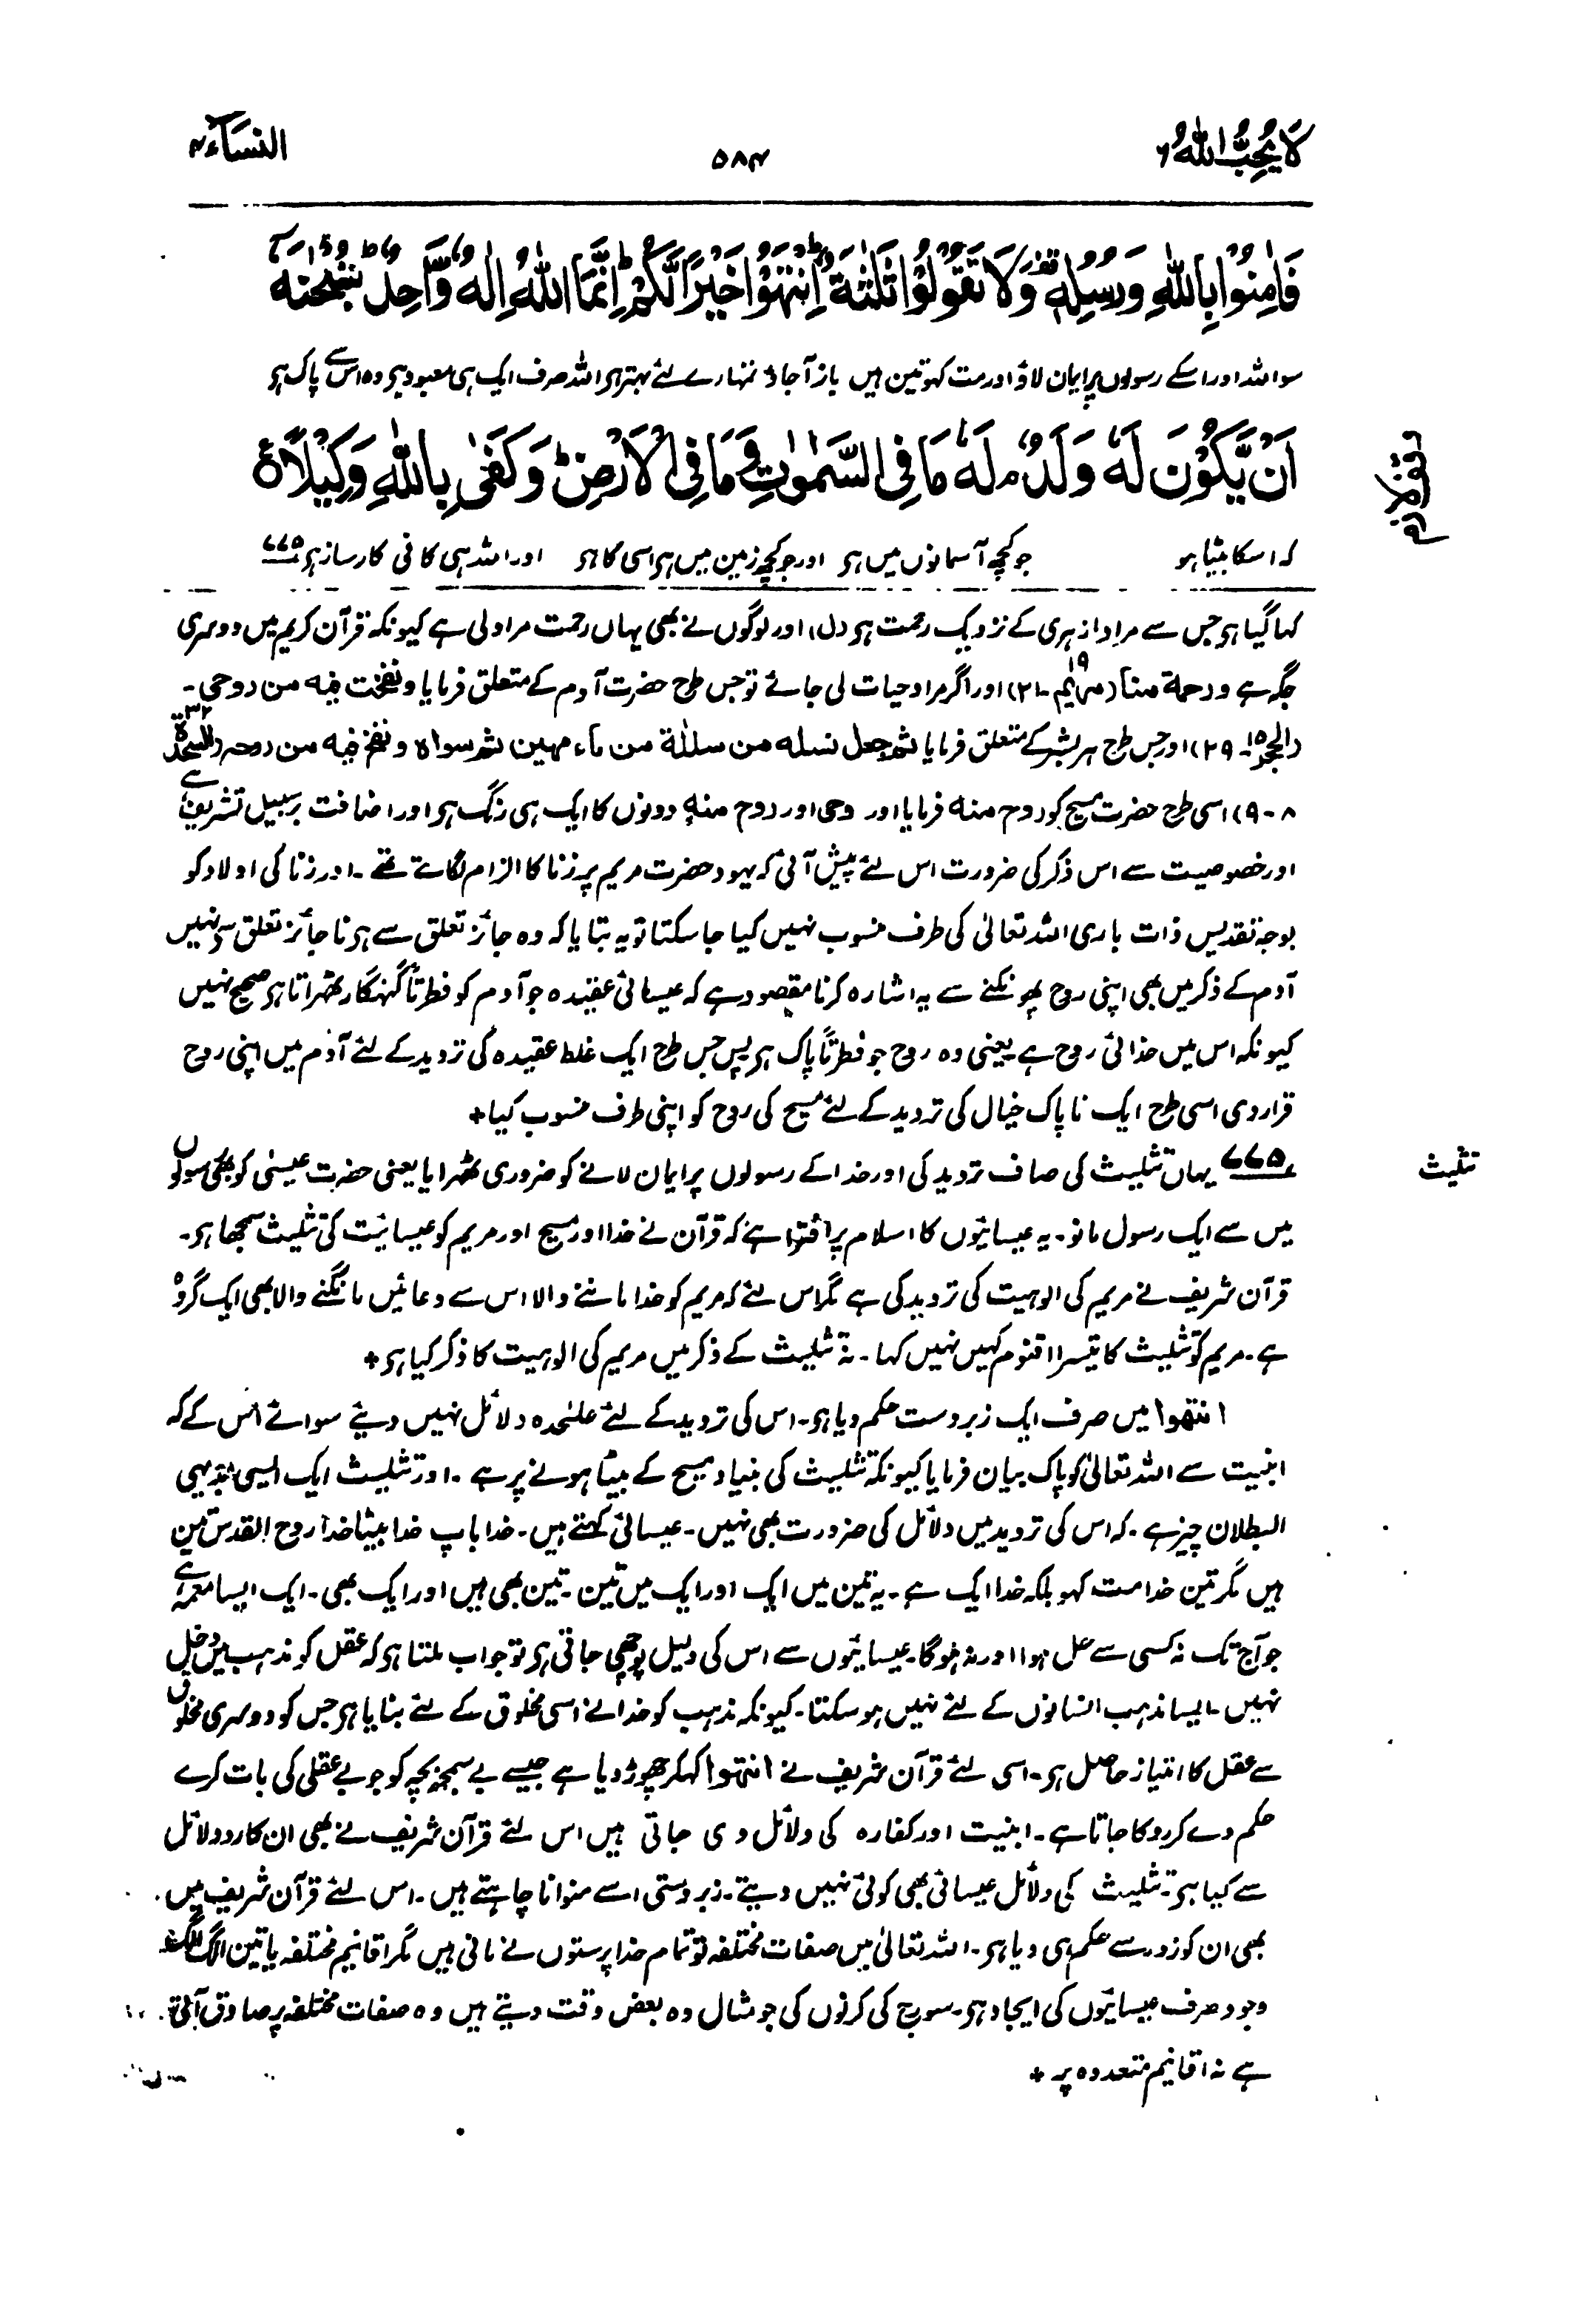 لَا يُحِبُّ اللهُ ۶
۵۸۴
النساء ۴
فَاٰمِنُوْا بِاللّٰهِ وَرُسُلِهٖ ۚ وَلَا تَقُوْلُوْا ثَلٰثَةٌ ؕ اِنْتَهُوْا خَيْرًا لَّكُمْ ؕ اِنَّمَا اللّٰهُ اِلٰهٌ وَّاحِدٌ ؕ سُبْحٰنَهٗۤ
سو اللہ اور اسکے رسولوں پر ایمان لاؤ اور مت کہو تین ہیں باز آجاؤ تمہارے لئے بہتر ہر اللہ صرف ایک ہی معبود ہر وہ اس سے پاک ہر
اَنْ يَّكُوْنَ لَهٗ وَلَدٌ ۘ لَهٗ مَا فِي السَّمٰوٰتِ وَمَا فِي الْاَرْضِ ؕ وَكَفٰى بِاللّٰهِ وَكِيْلًا ع
کہ اسکا بیٹا ہو جو کچھ آسمانوں میں ہر اور جو کچھ زمین میں ہر اسی کا ہر اور اللہ ہی کافی کارساز ہر ۷۷۵
کہا گیا ہر جس سے مراد ازہری کے نزدیک رحمت ہر دل، اور لوگوں نے بھی یہاں رحمت مراد لی ہے کیونکہ قرآن کریم میں دوسری
جگہ ہے ورحمة منا (مریم ۱۹-۲۱) اور اگر مراد حیات لی جائے تو جس طرح حضرت آدم کے متعلق فرمایا ونفخت فیہ من روحی۔
(الحجر ۱۵-۲۹) اور جس طرح ہر بشر کے متعلق فرمایا ثم جعل نسله من سلٰلة من ماء مهین ثم سواہ ونفخ فیه من روحه (السجدة ۳۲
۸-۹) اسی طرح حضرت مسیح کو روح منه فرمایا اور روحی اور روح منه دونوں کا ایک ہی رنگ ہر اور اضافت برسبیل تشریف ہے
اور خصوصیت سے اس ذکر کی ضرورت اس لئے پیش آئی کہ یہود حضرت مریم پر زنا کا الزام لگاتے تھے۔ اور زنا کی اولاد کو
بوجہ تقدیس ذات باری اللہ تعالیٰ کی طرف منسوب نہیں کیا جا سکتا تو یہ بتایا کہ وہ جائز تعلق سے ہر ناجائز تعلق سے نہیں
آدم کے ذکر میں بھی اپنی روح پھونکنے سے یہ اشارہ کرنا مقصود ہے کہ عیسائی عقیدہ جو آدم کو فطرتاً گنہگار ٹھراتا ہر صحیح نہیں
کیونکہ اس میں خدائی روح ہے یعنی وہ روح جو فطرتاً پاک ہر پس جس طرح ایک غلط عقیدہ کی تردید کے لئے آدم میں اپنی روح
قرار دی اسی طرح ایک ناپاک خیال کی تردید کے لئے مسیح کی روح کو اپنی طرف منسوب کیا+
تثلیث
۷۷۵ یہاں تثلیث کی صاف تردید کی اور خدا کے رسولوں پر ایمان لانے کو ضروری ٹھرایا یعنی حضرت عیسٰی کو بھی رسولوں
میں سے ایک رسول مانو۔ یہ عیسائیوں کا اسلام پر افترا ہے کہ قرآن نے خدا اور مسیح اور مریم کو عیسائیت کی تثلیث سمجھا ہر۔
قرآن شریف نے مریم کی الوہیت کی تردید کی ہے مگر اس لئے کہ مریم کو خدا ماننے والا اس سے دعائیں مانگنے والا بھی ایک گروہ
ہے۔ مریم کو تثلیث کا تیسرا اقنوم کہیں نہیں کہا۔ نہ تثلیث کے ذکر میں مریم کی الوہیت کا ذکر کیا ہر+
انتھوا میں صرف ایک زبردست حکم دیا ہر۔ اس کی تردید کے لئے علیٰحدہ دلائل نہیں دیئے سوائے اس کے کہ
ابنیت سے اللہ تعالیٰ کو پاک بیان فرمایا کیونکہ تثلیث کی بنیاد مسیح کے بیٹا ہونے پر ہے۔ اور تثلیث ایک ایسی بدیہی
البطلان چیز ہے۔ کہ اس کی تردید میں دلائل کی ضرورت بھی نہیں۔ عیسائی کہتے ہیں۔ خدا باپ خدا بیٹا خدا روح القدس تین
ہیں مگر تین خدا مت کہو بلکہ خدا ایک ہے۔ یہ تین میں ایک اور ایک میں تین۔ تین بھی ہیں اور ایک بھی۔ ایک ایسا معمہ ہے
جو آج تک نہ کسی سے حل ہوا اور نہ ہوگا۔ عیسائیوں سے اس کی دلیل پوچھی جاتی ہر تو جواب ملتا ہر کہ عقل کو مذہب میں دخل
نہیں۔ ایسا مذہب انسانوں کے لئے نہیں ہو سکتا۔ کیونکہ مذہب کو خدا نے اسی مخلوق کے لئے بنایا ہر جس کو دوسری مخلوق
سے عقل کا امتیاز حاصل ہر۔ اسی لئے قرآن شریف نے انتھوا کہکر چھوڑ دیا ہے جیسے بے سمجھ بچہ کو جو بے عقلی کی بات کرے
حکم دے کر روکا جاتا ہے۔ ابنیت اور کفارہ کی دلائل دی جاتی ہیں اس لئے قرآن شریف نے بھی ان کا رد دلائل
سے کیا ہر۔ تثلیث کی دلائل عیسائی بھی کوئی نہیں دیتے۔ زبردستی اسے منوانا چاہتے ہیں۔ اس لئے قرآن شریف میں
بھی ان کو زور سے حکم ہی دیا ہر۔ اللہ تعالیٰ میں صفات مختلفہ تو تمام خدا پرستوں نے مانی ہیں مگر اقانیم مختلفہ یا تین الگ الگ
وجود صرف عیسائیوں کی ایجاد ہر۔ سورج کی کرنوں کی جو مثال وہ بعض وقت دیتے ہیں وہ صفات مختلفہ پر صادق آتی
ہے نہ اقانیم متعددہ پر +